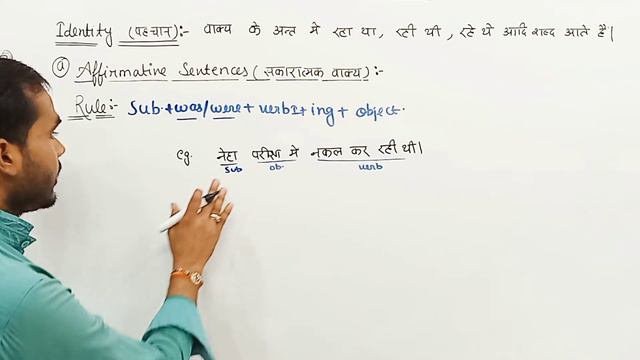 Identity (पहचान):- वाक्य के अन्त मे रहा था, रही थी, रहे थे आदि शब्द आते है।
ⓐ Affirmative Sentences (सकारात्मक वाक्य):-
Rule:- Sub + was/were + verb I + ing + object.
eg. नेहा परीक्षा मे नकल कर रही थी।
Sub ob. verb